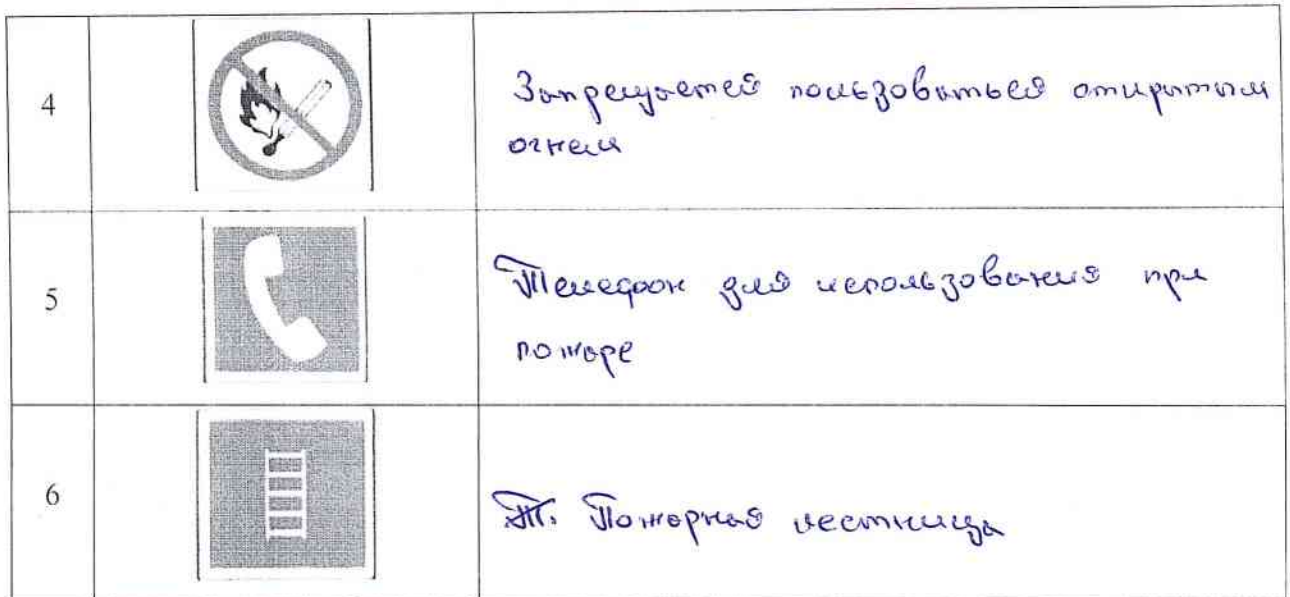 4
Запрещается пользоваться открытым
огнем
5
Телефон для использования при
пожаре
6
Пожарная лестница